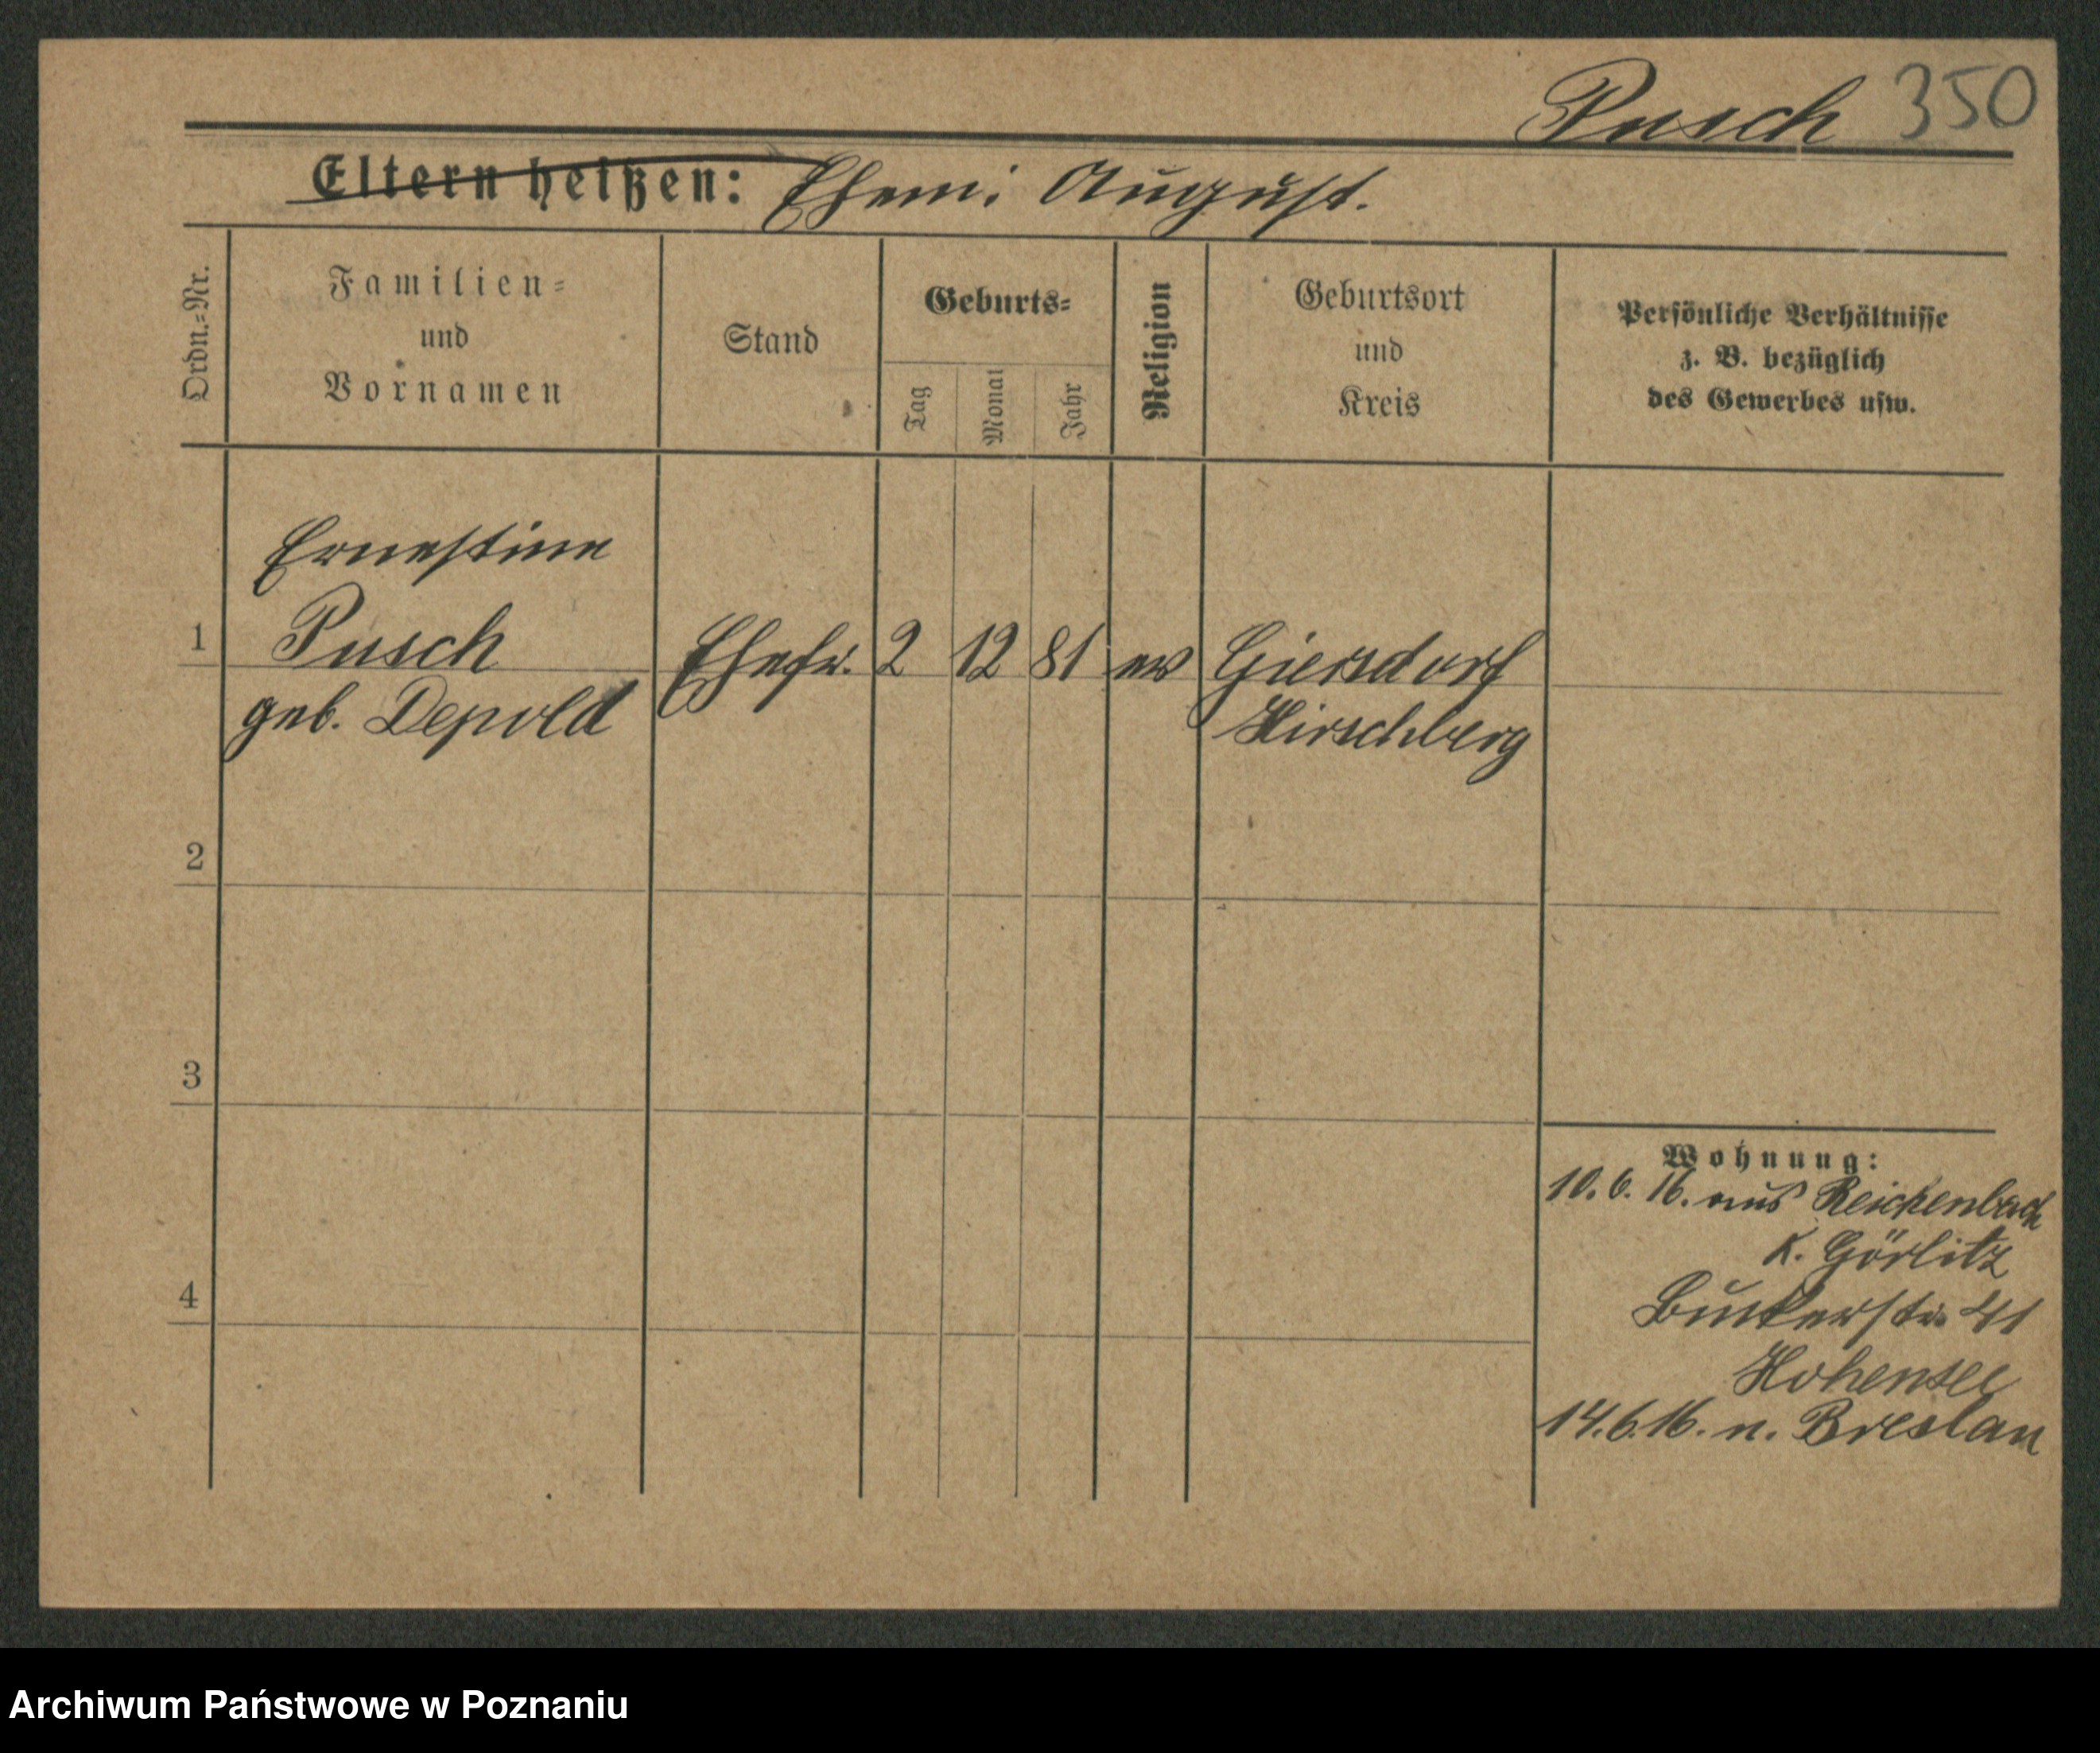 Pusch 350
Eltern heißen: Ehem: August.
Ordn.=Nr.
Familien=
und
Vornamen
Stand
Geburts=
Tag
Monat
Jahr
Religion
Geburtsort
und
Kreis
Persönliche Verhältnisse
z. B. bezüglich
des Gewerbes usw.
Ernestine
1 Pusch Ehefr. 2 12 81 ev Giersdorf
geb. Depold Hirschberg
2
3
4
Wohnung:
10. 6. 16. aus Reichenbach
K. Görlitz
Bukerstr 41
Hohensee
14.6.16. n. Breslau
Archiwum Państwowe w Poznaniu